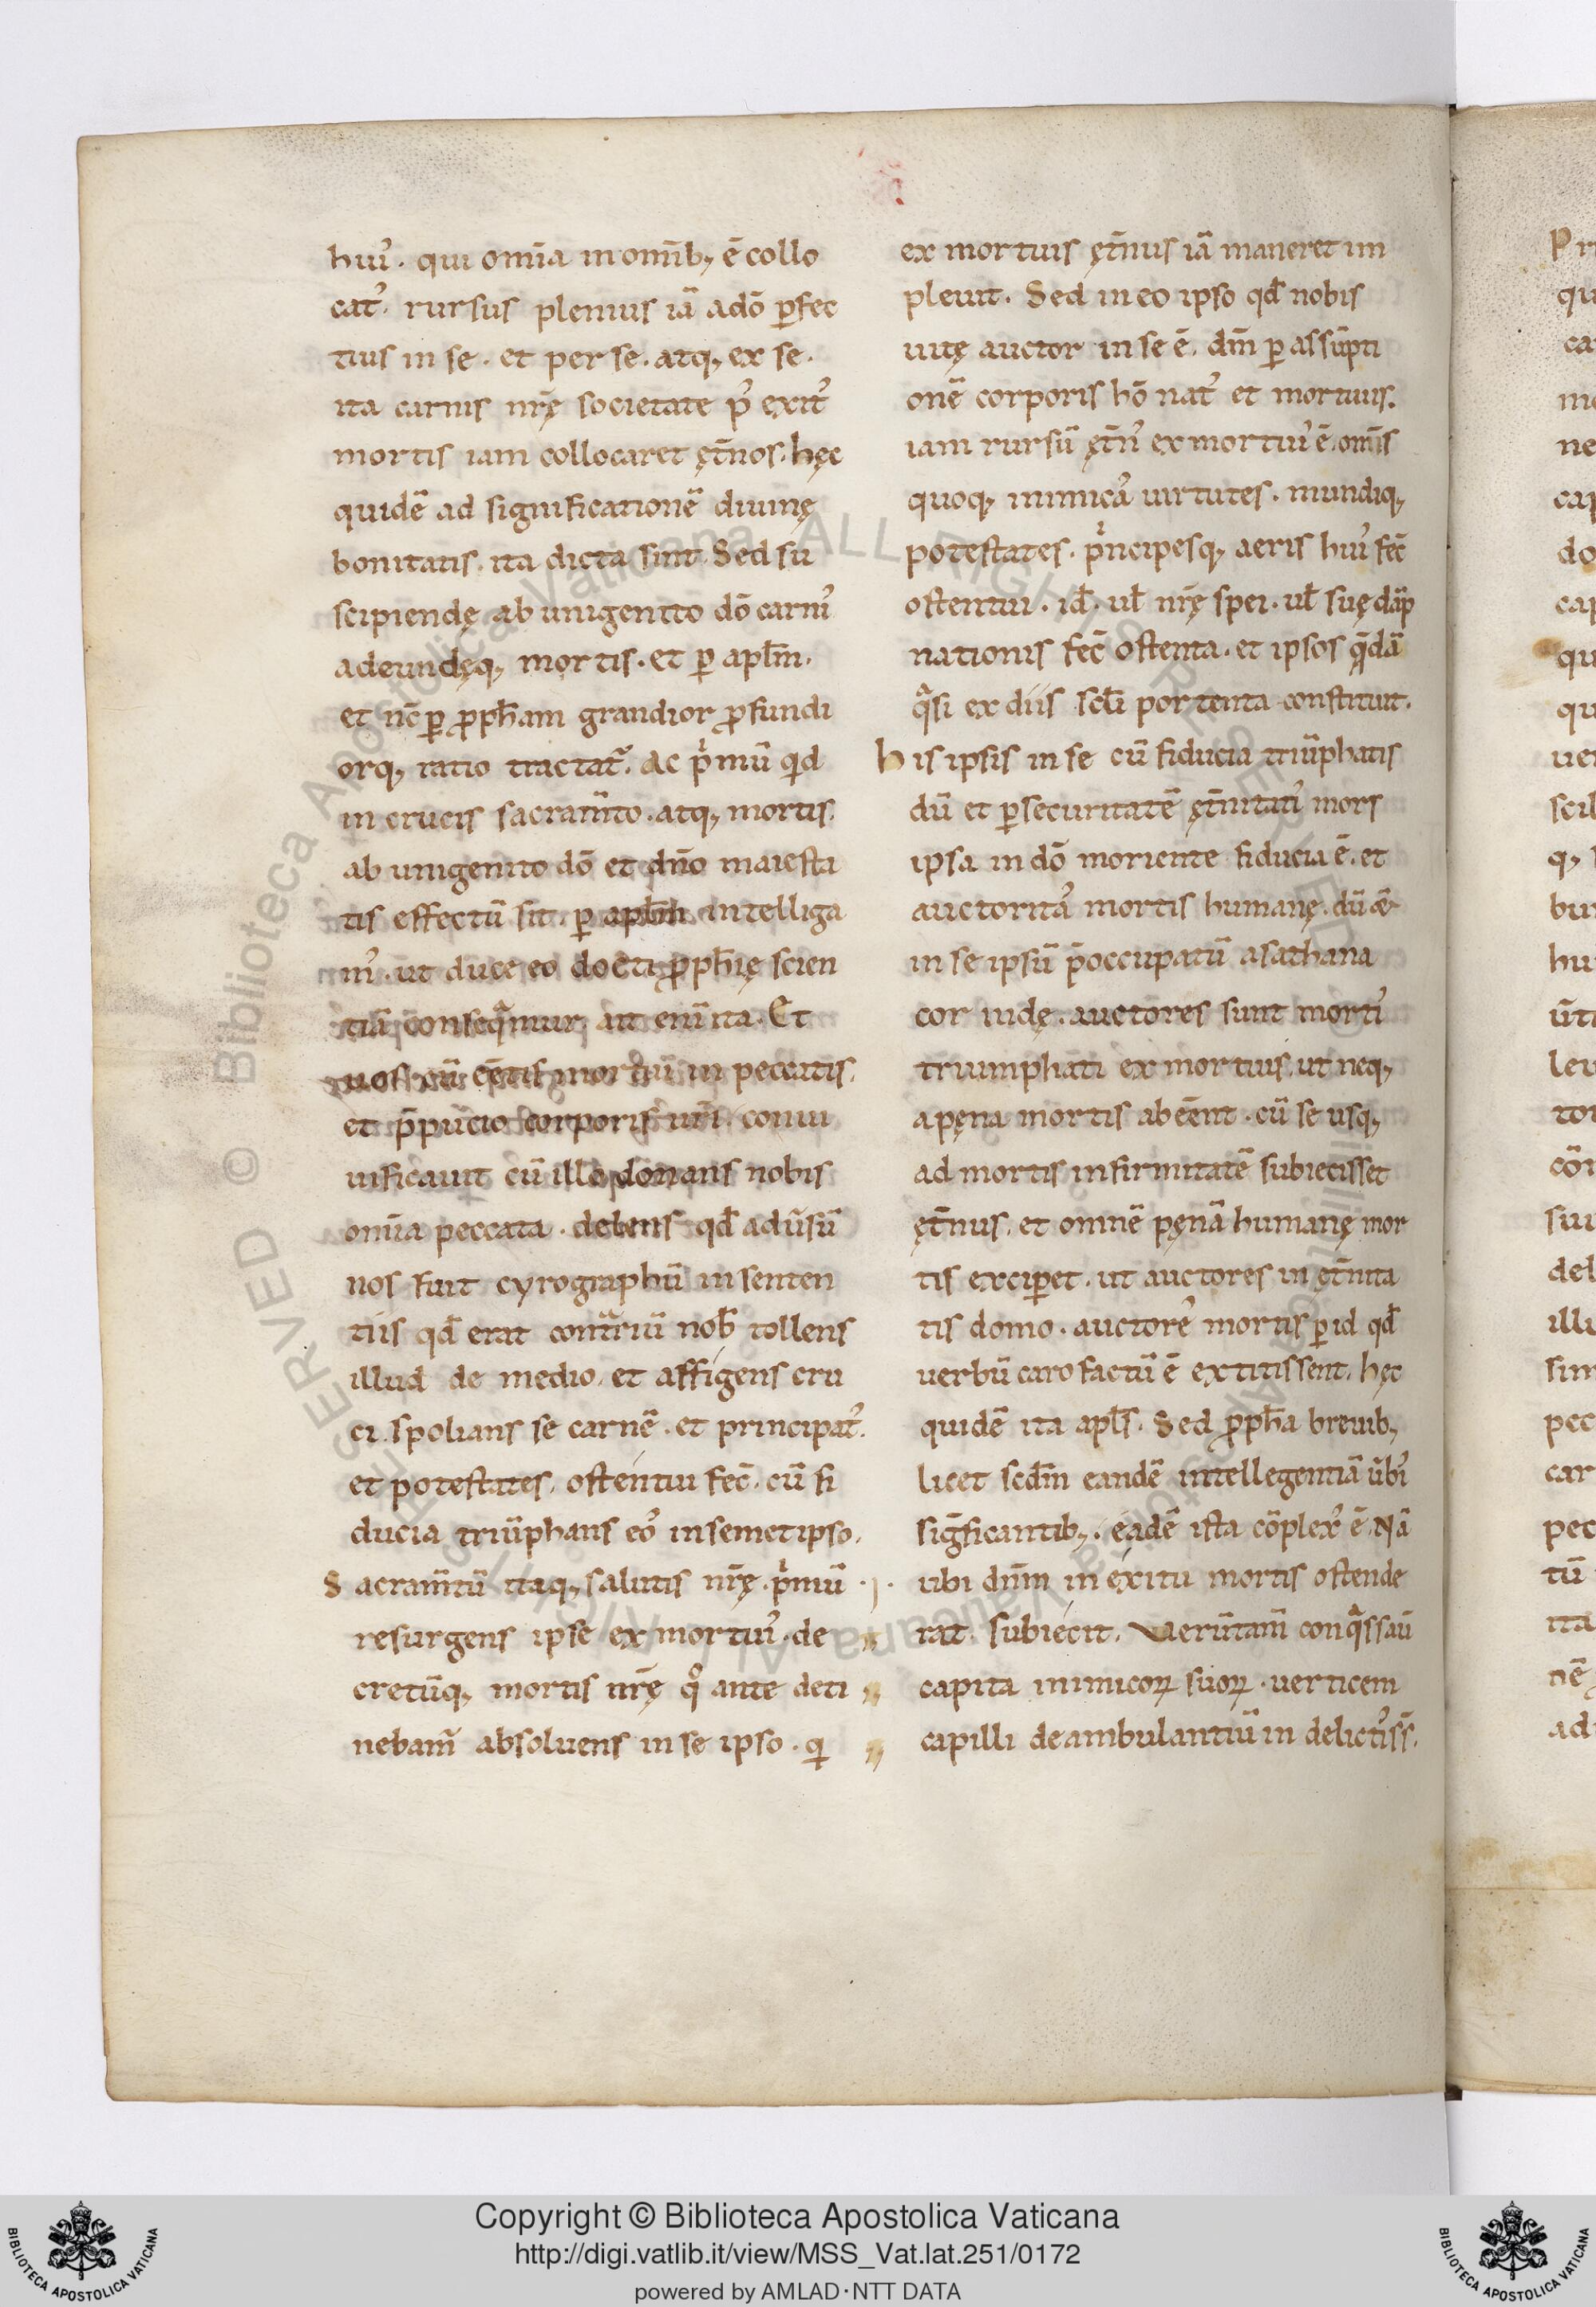 huiꝰ. qui om̅ia in om̅ib; e̅ collo
catꝰ. rursus plenius ia̅ a do̅ ꝑfec
tius in se. et per se. atq; ex se.
ita carnis nr̅ę societate pꝰ exitꝰ
mortis iam collocaret ęt̅nos. hęc
quide̅ ad significatione̅ diuinę
bonitatis. ita dicta sint. Sed su
scipiendę ab unigenito do̅ carniꝰ
adeundęq; mortis. et ꝑ apl̅m.
et nc̅ ꝑ ꝓph̅am grandior ꝓfundi
orq; ratio tractat᷑. Ac p̍mu̅ qid
in crucis sacram̅to. atq; mortis.
ab unigenito do̅ et dn̅o maiesta
tis effectu̅ sit. ꝑ apl̅m intelliga
mꝰ. ut duce eo docti ꝓph̅ię scien
tia̅ conseqͣmur. ait eni̅ ita. Et
uos cu̅ ee̅tis mortui in peccatis.
et p̅pucio corporis ur̅i. conui
uificauit cu̅ illo donans nobis
om̅ia peccata. delens qd̅ adu̅su̅
nos fuit cyrographu̅ in senten
tiis qd̅ erat cont̅riu̅ nob̅ tollens
illud de medio. et affigens cru
ci. spolians se carne̅. et principatꝰ.
et potestates. ostentui fec̅. cu̅ fi
ducia triu̅phans eoꝰ in semetipso.
Sacram̅tu̅ itaq; salutis nr̅ę. p̍mu̅
resurgens ipse ex mortuiꝰ. de
cretu̅q; mortis nr̅ę qͦ ante deti
nebam᷑ absoluens in se ipso. qi
ex mortuis ęt̅nus ia̅ maneret im
pleuit. Sed in eo ipso qd̅ nobis
uitę auctor in se e̅. dm̅ ꝑ assu̅pti
one̅ corporis ho̅ natꝰ et mortuus.
iam rursu̅ ęt̅nꝰ ex mortuiꝰ e̅. om̅is
quoq; inimicaꝰ uirtutes. mundiq;
potestates. p̍ncipesq; aeris huiꝰ fec̅
ostentui. id̅. ul̅ nr̅ę spei. ul̅ suę da̅p
nationis fec̅ ostenta. et ipsos qͣda̅
qͣsi ex diis scl̅i portenta constituit.
his ipsis in se cu̅ fiducia triu̅phatis
du̅ et ꝑ securitate̅ ęt̅nitatiꝰ mors
ipsa in do̅ moriente fiducia e̅. et
auctoritaꝰ mortis humanę. du̅ &
in se ipsu̅ p̅occupatu̅ a sathana
cor iudę. auctores sunt mortiꝰ
triumphati ex mortuis. ut neq;
a pęna mortis abee̅nt. cu̅ se usq;
ad mortis infirmitate̅ subiecisset
ęt̅nus. et omne̅ pęna̅ humanę mor
tis exciꝑet. ut auctores in ęt̅nita
tis domo. auctoreꝰ mortis ꝑ id qd̅
uerbu̅ caro factu̅ e̅ extitissent. hęc
quide̅ ita apl̅s. Sed ꝓph̅a breuib;
licet scdm̅ eande̅ intellegentia̅ u̅biꝰ
sig̅ficantib;. eade̅ ista co̅plexꝰ e̅. Na̅
ubi dn̅m in exitu mortis ostende
rat. subiecit. Ueru̅tam̅ conqͣssau̅
capita inimicoꝝ suoꝝ. uerticem
capilli deambulantiu̅ in delictiꝰ ss̅.
Copyright © Biblioteca Apostolica Vaticana
http://digi.vatlib.it/view/MSS_Vat.lat.251/0172
powered by AMLAD · NTT DATA
BIBLIOTECA APOSTOLICA VATICANA
BIBLIOTECA APOSTOLICA VATICANA